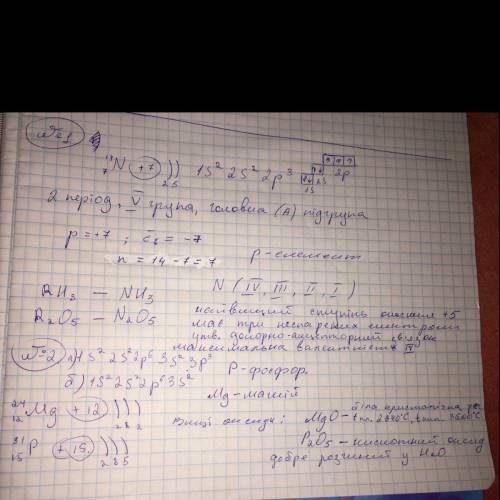 №1
¹⁴₇N (+7) ))) 1s² 2s² 2p³ 2s 2p
2 5
2 період, V група, головна (А) підгрупа
p = +7 ; ē = -7 p-елемент
n = 14 - 7 = 7
RH₃ — NH₃ N (IV, III, II, I)
R₂O₅ — N₂O₅ найвищий ступінь окиснення +5
має три неспарених електрони
утв. донорно-акцепторний зв'язок
максимальна валентність IV
№2 а) 1s² 2s² 2p⁶ 3s² 3p³ P-фосфор.
б) 1s² 2s² 2p⁶ 3s² Mg-магній
²⁴₁₂Mg (+12) )))
2 8 2
Вищі оксиди: MgO - біла кристалічна
³¹₁₅P (+15) )))
2 8 5
P₂O₅ - кислотний оксид
добре розчинний у H₂O